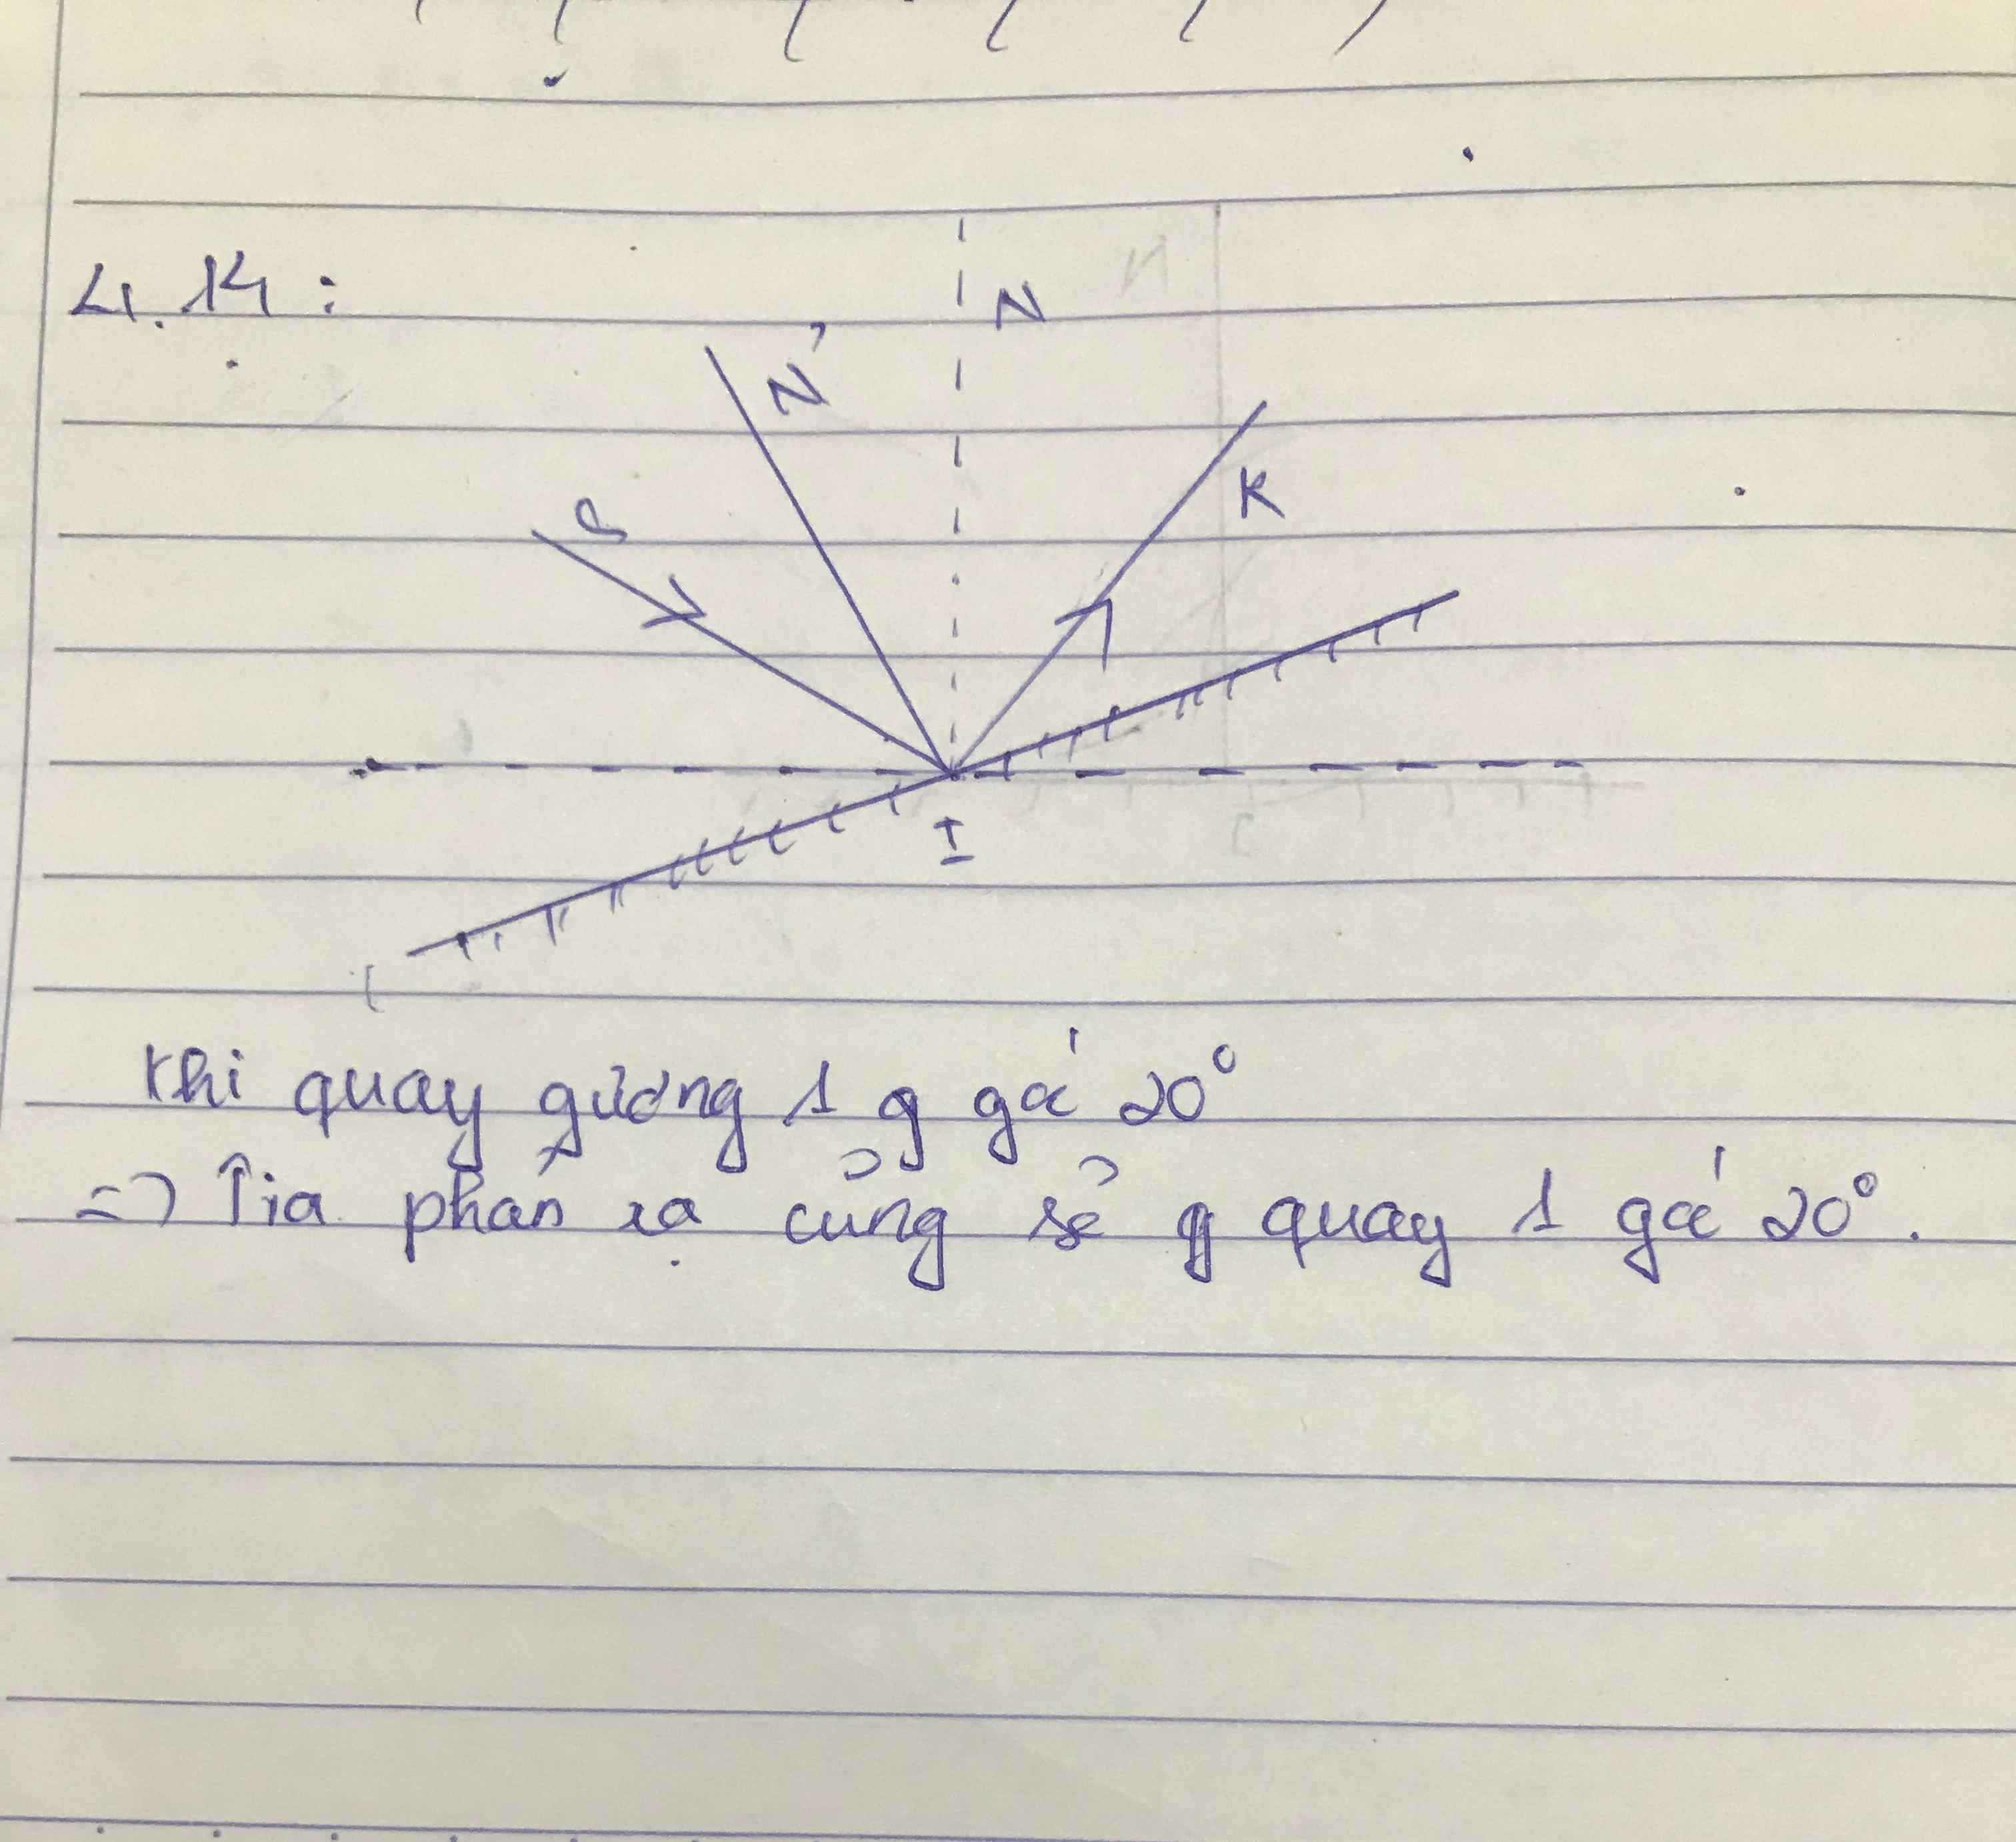 4.14:
N
N'
S
K
I
Khi quay gương 1 g gá 20°
=> Tia phản xạ cũng sẽ g quay 1 gá 20°.